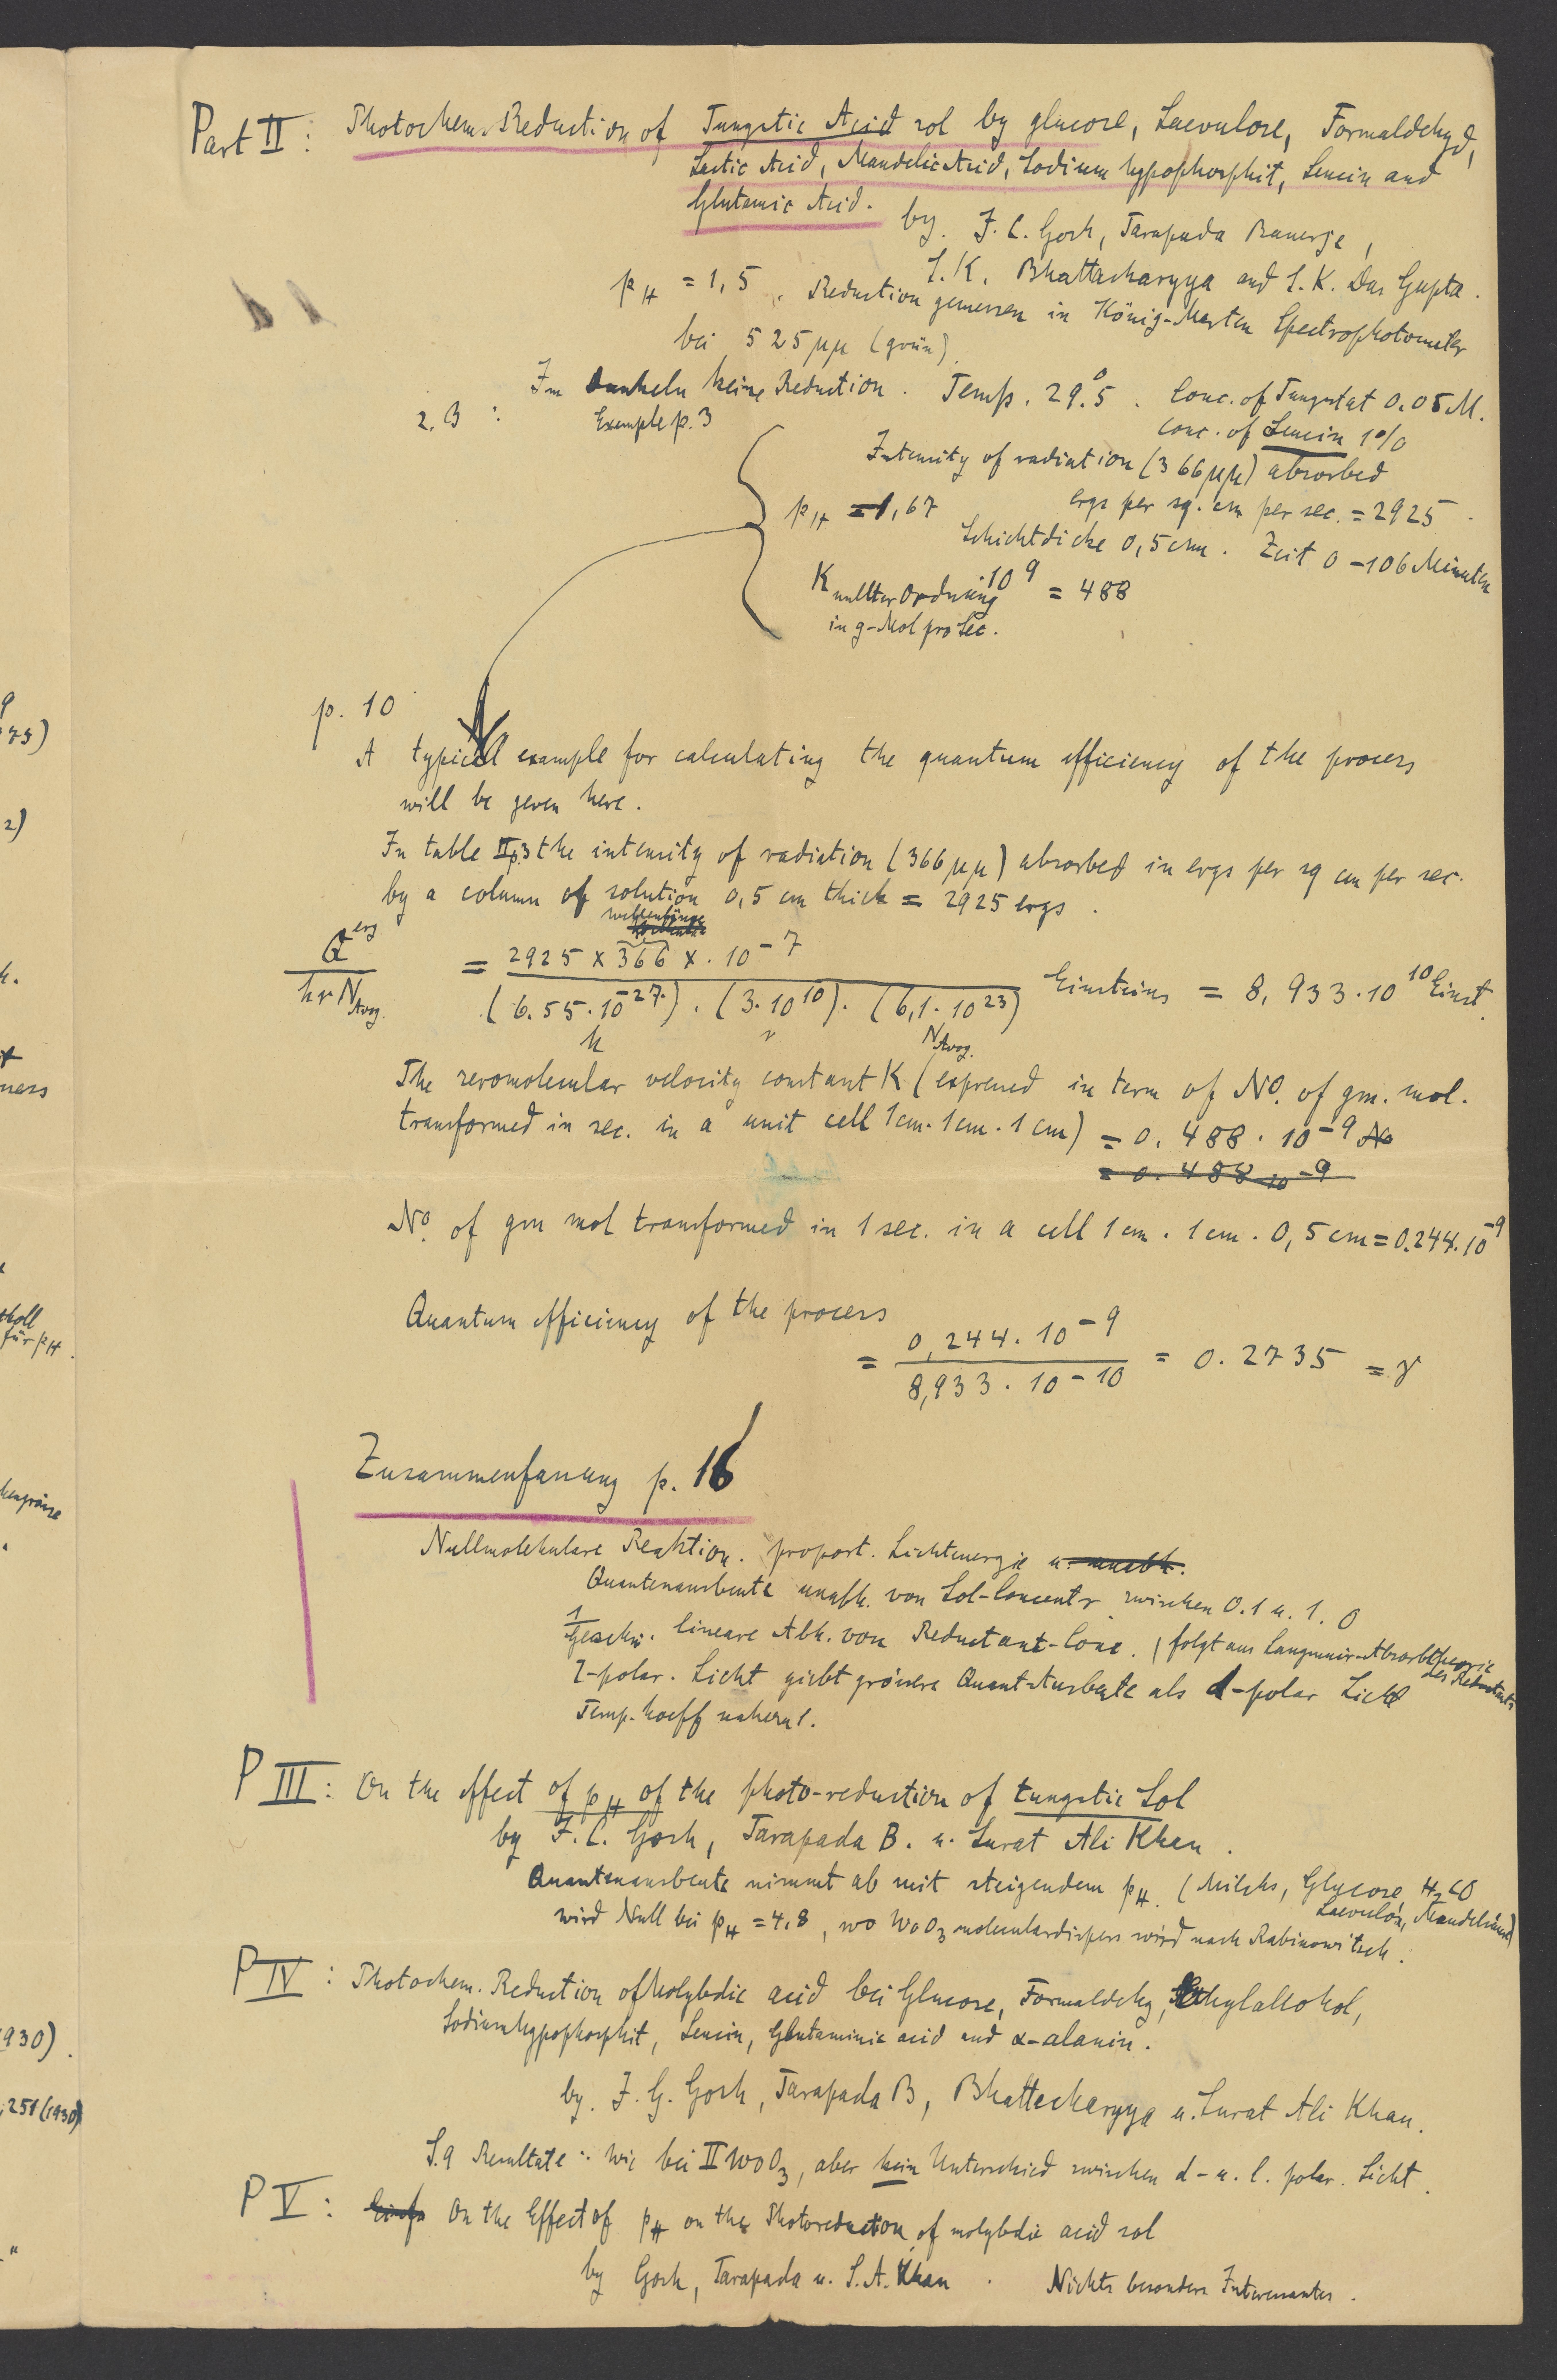 Part II: Photochem. Reduction of Tungstic Acid sol by glucose, Laevulose, Formaldehyd,
Lactic Acid, Mandelic Acid, Sodium hypophosphit, Leucin and
Glutamic Acid. by. J. C. Gosh, Tarapada Banerje,
S. K. Bhattacharyya and S. K. Das Gupta.
pH = 1,5. Reduction gemessen in König-Marten Spectrophotometer
bei 525 μμ (grün).
Im Dunkeln keine Reduction. Temp. 29.°5. Conc. of Tungstat 0.05 M.
z. B: Exemple p. 3
conc. of Leucin 1%
Intensity of radiation (366 μμ) absorbed
ergs per sq. cm per sec. = 2925.
pH = 1,67
Schichtdicke 0,5 cm. Zeit 0 – 106 Minuten
K nullter Ordnung 10 9 = 488
in g-Mol pro Sec.
p. 10
A typical example for calculating the quantum efficiency of the process
will be geven here.
In table II p.3 the intensity of radiation (366 μμ) absorbed in ergs per sq cm per sec.
by a column of solution 0,5 cm thick = 2925 ergs.
wellenlänge
Q erg / hν N Avog. = 2925 x 366 x . 10 – 7 / (6.55 . 10 -27) . (3 . 10 10) . (6,1 . 10 23) Einsteins = 8,933 . 10 10 Einst.
h ν N Avog.
The zeromolecular velocity constant K (expressed in term of No. of gm. mol.
transformed in sec. in a unit cell 1 cm . 1 cm . 1 cm) = 0. 488 . 10 – 9 No
= 0. 488 10 – 9
No. of gm mol transformed in 1 sec. in a cell 1 cm . 1 cm . 0,5 cm = 0.244. 10 -9
Quantum efficiency of the process
= 0,244 . 10 – 9 / 8,933 . 10 – 10 = 0. 2735 = γ
Zusammenfassung p. 16
Nullmolekulare Reaktion. proport. Lichtenergie u. unabh.
Quantenausbeute unabh. von Sol-Concentr. zwischen 0.1 u. 1. 0
1/Geschw. lineare Abh. von Reductant-Conc. (folgt aus Langmuir-Absorbtheorie
des Reductants
l-polar. Licht giebt grössere Quant-Ausbeute als d-polar Licht
Temp. koeff nahezu 1.
P III: On the effect of pH of the photo-reduction of tungstic Sol
by J. C. Gosh, Tarapada B. u. Surat Ali Khan.
Quantenausbeute nimmt ab mit steigendem pH. (Milchs, Glycose, H2CO
Laevulos, Mandelsäure)
wird Null bei pH = 4,8, wo WoO3 moleculardispers wird nach Rabinowitsch.
P IV: Photochem. Reduction of Molybdic acid bei Glucose, Formaldehy, Ethylalkohol,
Sodiumhypophosphit, Leucin, Glutaminic acid and α-alanin.
by. J. G. Gosh, Tarapada B, Bhattecharyya u. Surat Ali Khan.
S. 9 Resultate: Wie bei II WoO3, aber kein Unterschied zwischen d- u. l. polar. Licht.
P V: On the Effect of pH on the Photoreduction of molybdic acid sol
by Gosh, Tarapada u. S. A. Khan. Nichts besonders Interessantes.